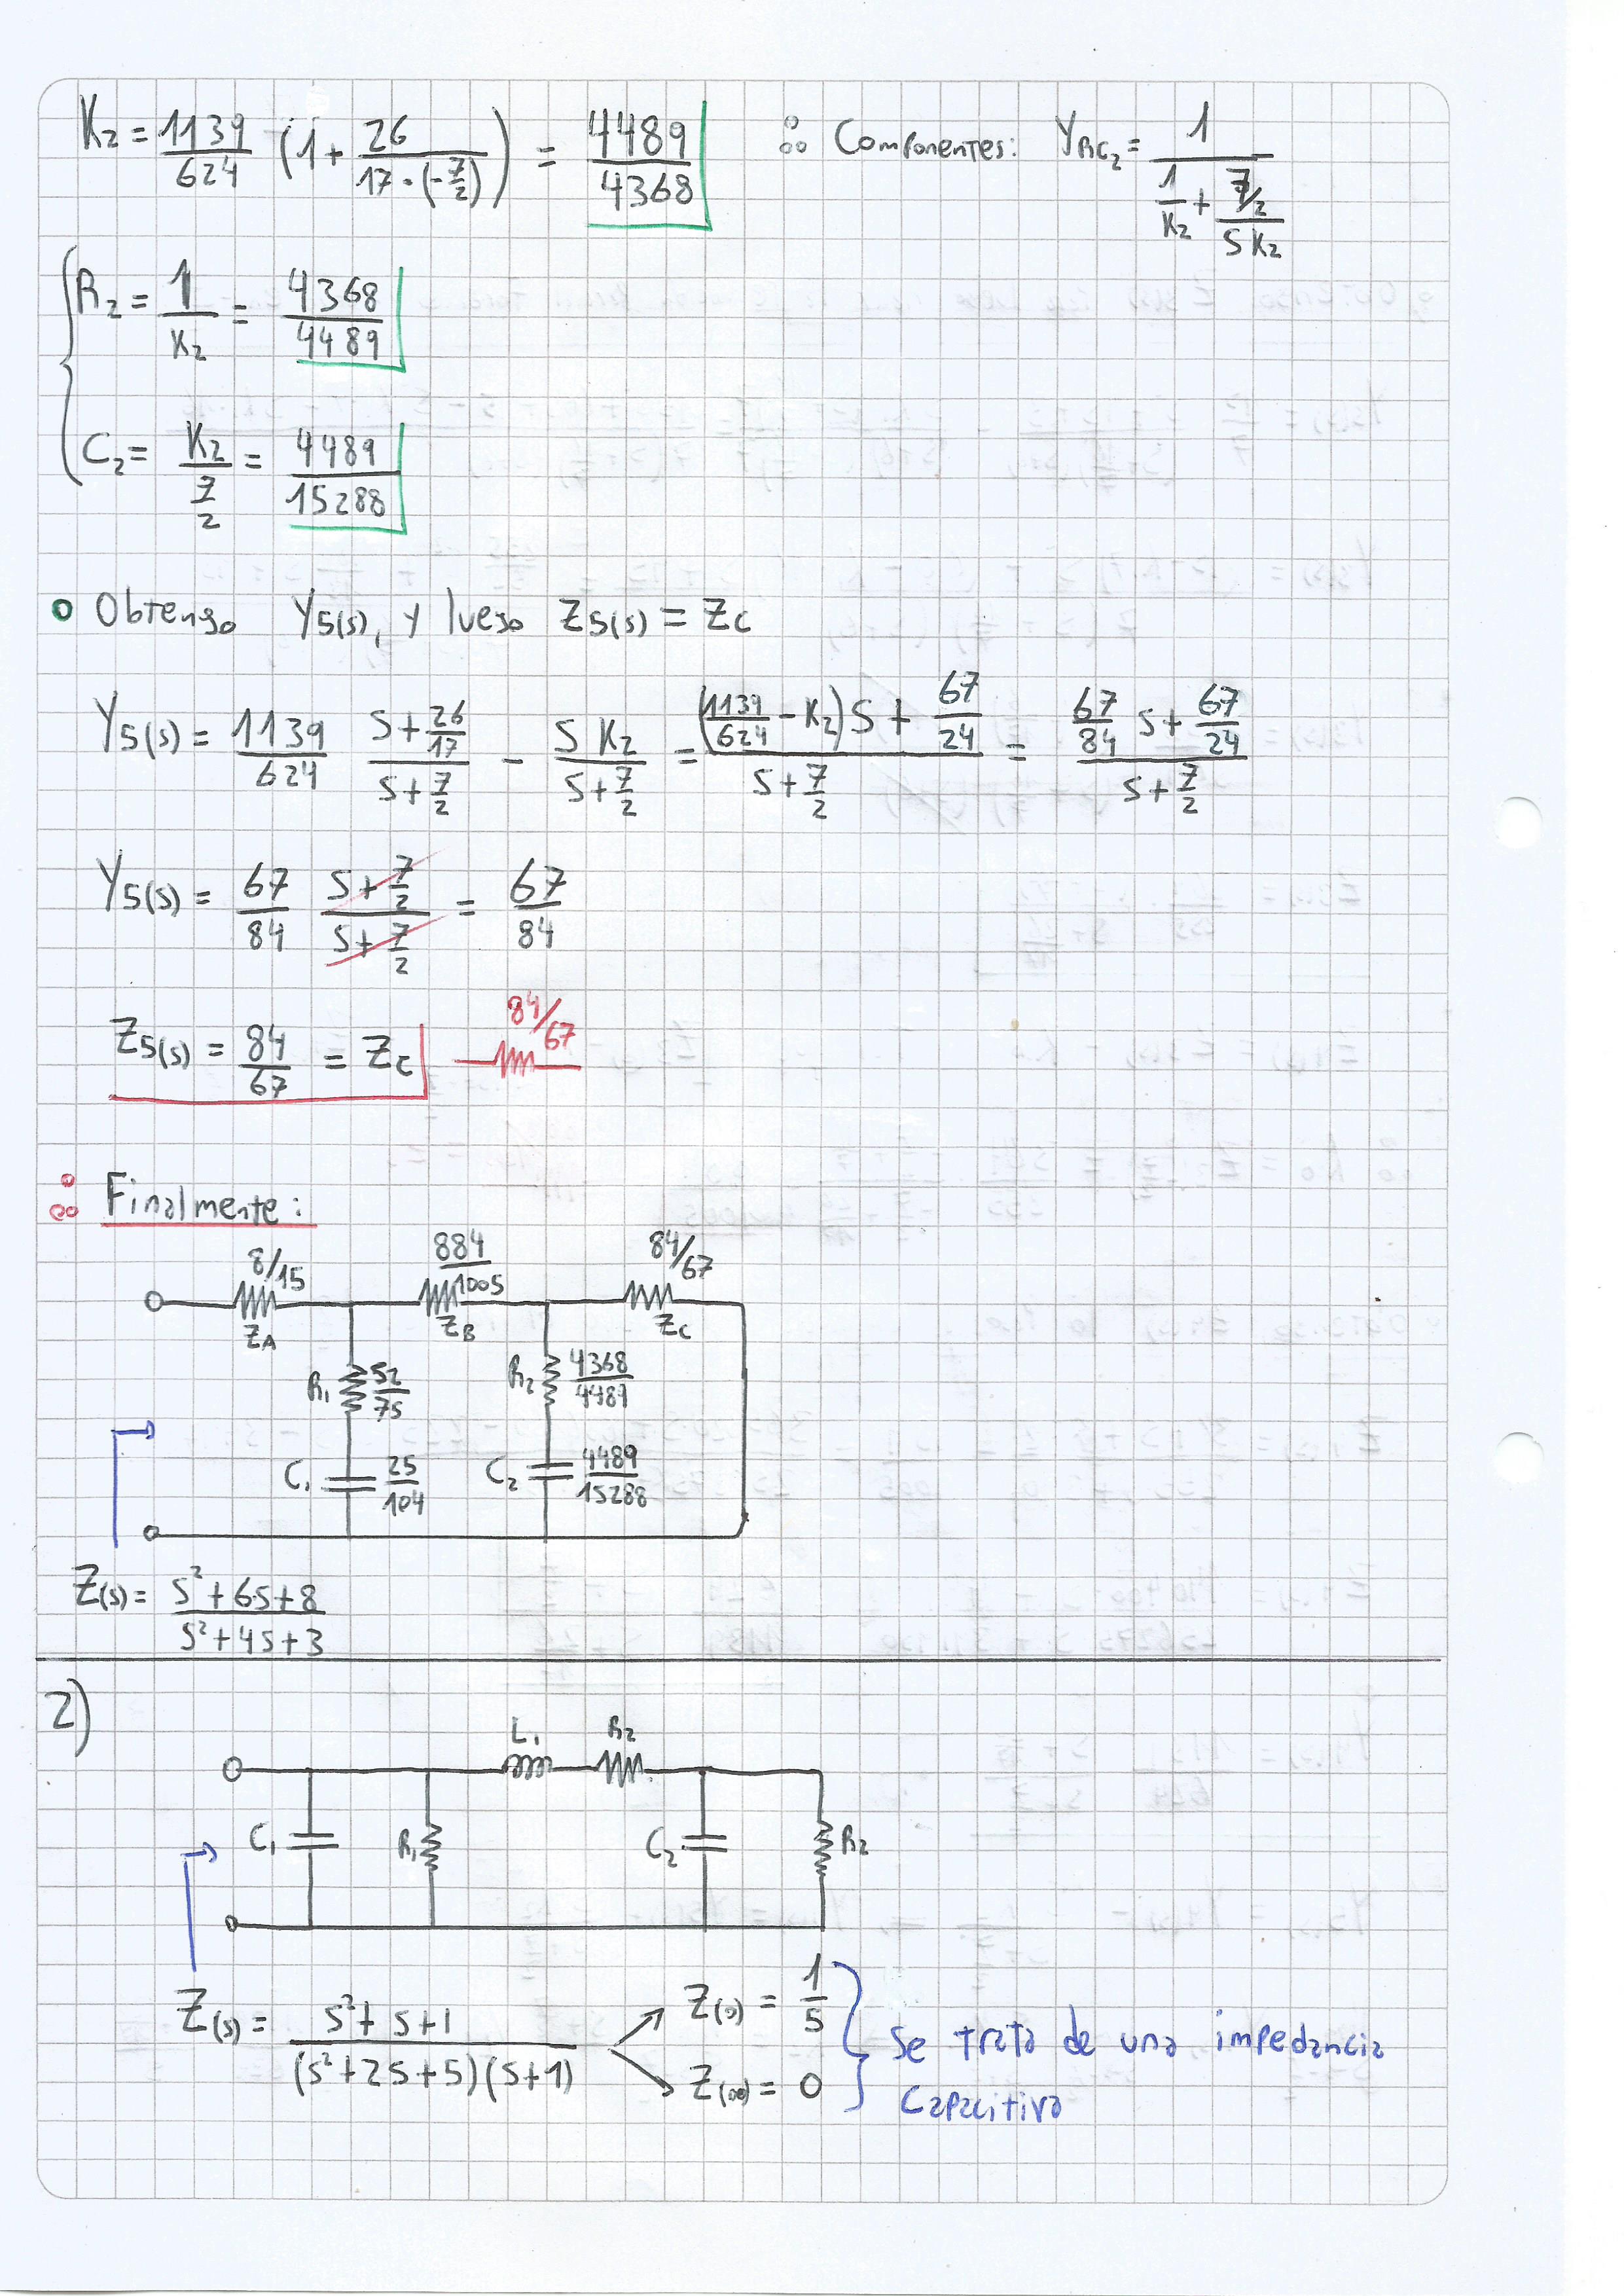 K₂ = 1139/624 (1 + 26/(17·(-7/2))) = 4489/4368 ∴ Componentes: Y_RC₂ = 1/(1/K₂ + (7/2)/(S K₂))
R₂ = 1/K₂ = 4368/4489
C₂ = K₂/(7/2) = 4489/15288
Obtengo Y₅(s), y luego Z₅(s) = Zc
Y₅(s) = 1139/624 (S + 26/17)/(S + 7/2) - S K₂/(S + 7/2) = ((1139/624 - K₂)S + 67/24)/(S + 7/2) = (67/84 S + 67/24)/(S + 7/2)
Y₅(s) = 67/84 (S + 7/2)/(S + 7/2) = 67/84
Z₅(s) = 84/67 = Zc 84/67
∴ Finalmente:
8/15 884/1005 84/67
ZA ZB Zc
R₁ 52/75 R₂ 4368/4489
C₁ 25/104 C₂ 4489/15288
Z(s) = (S² + 6S + 8)/(S² + 4S + 3)
2)
L₁ R₂
C₁ R₁ C₂ R₂
Z(s) = (S² + S + 1)/((S² + 2S + 5)(S + 1))
Z(0) = 1/5
Z(∞) = 0
Se trata de una impedancia
Capacitiva